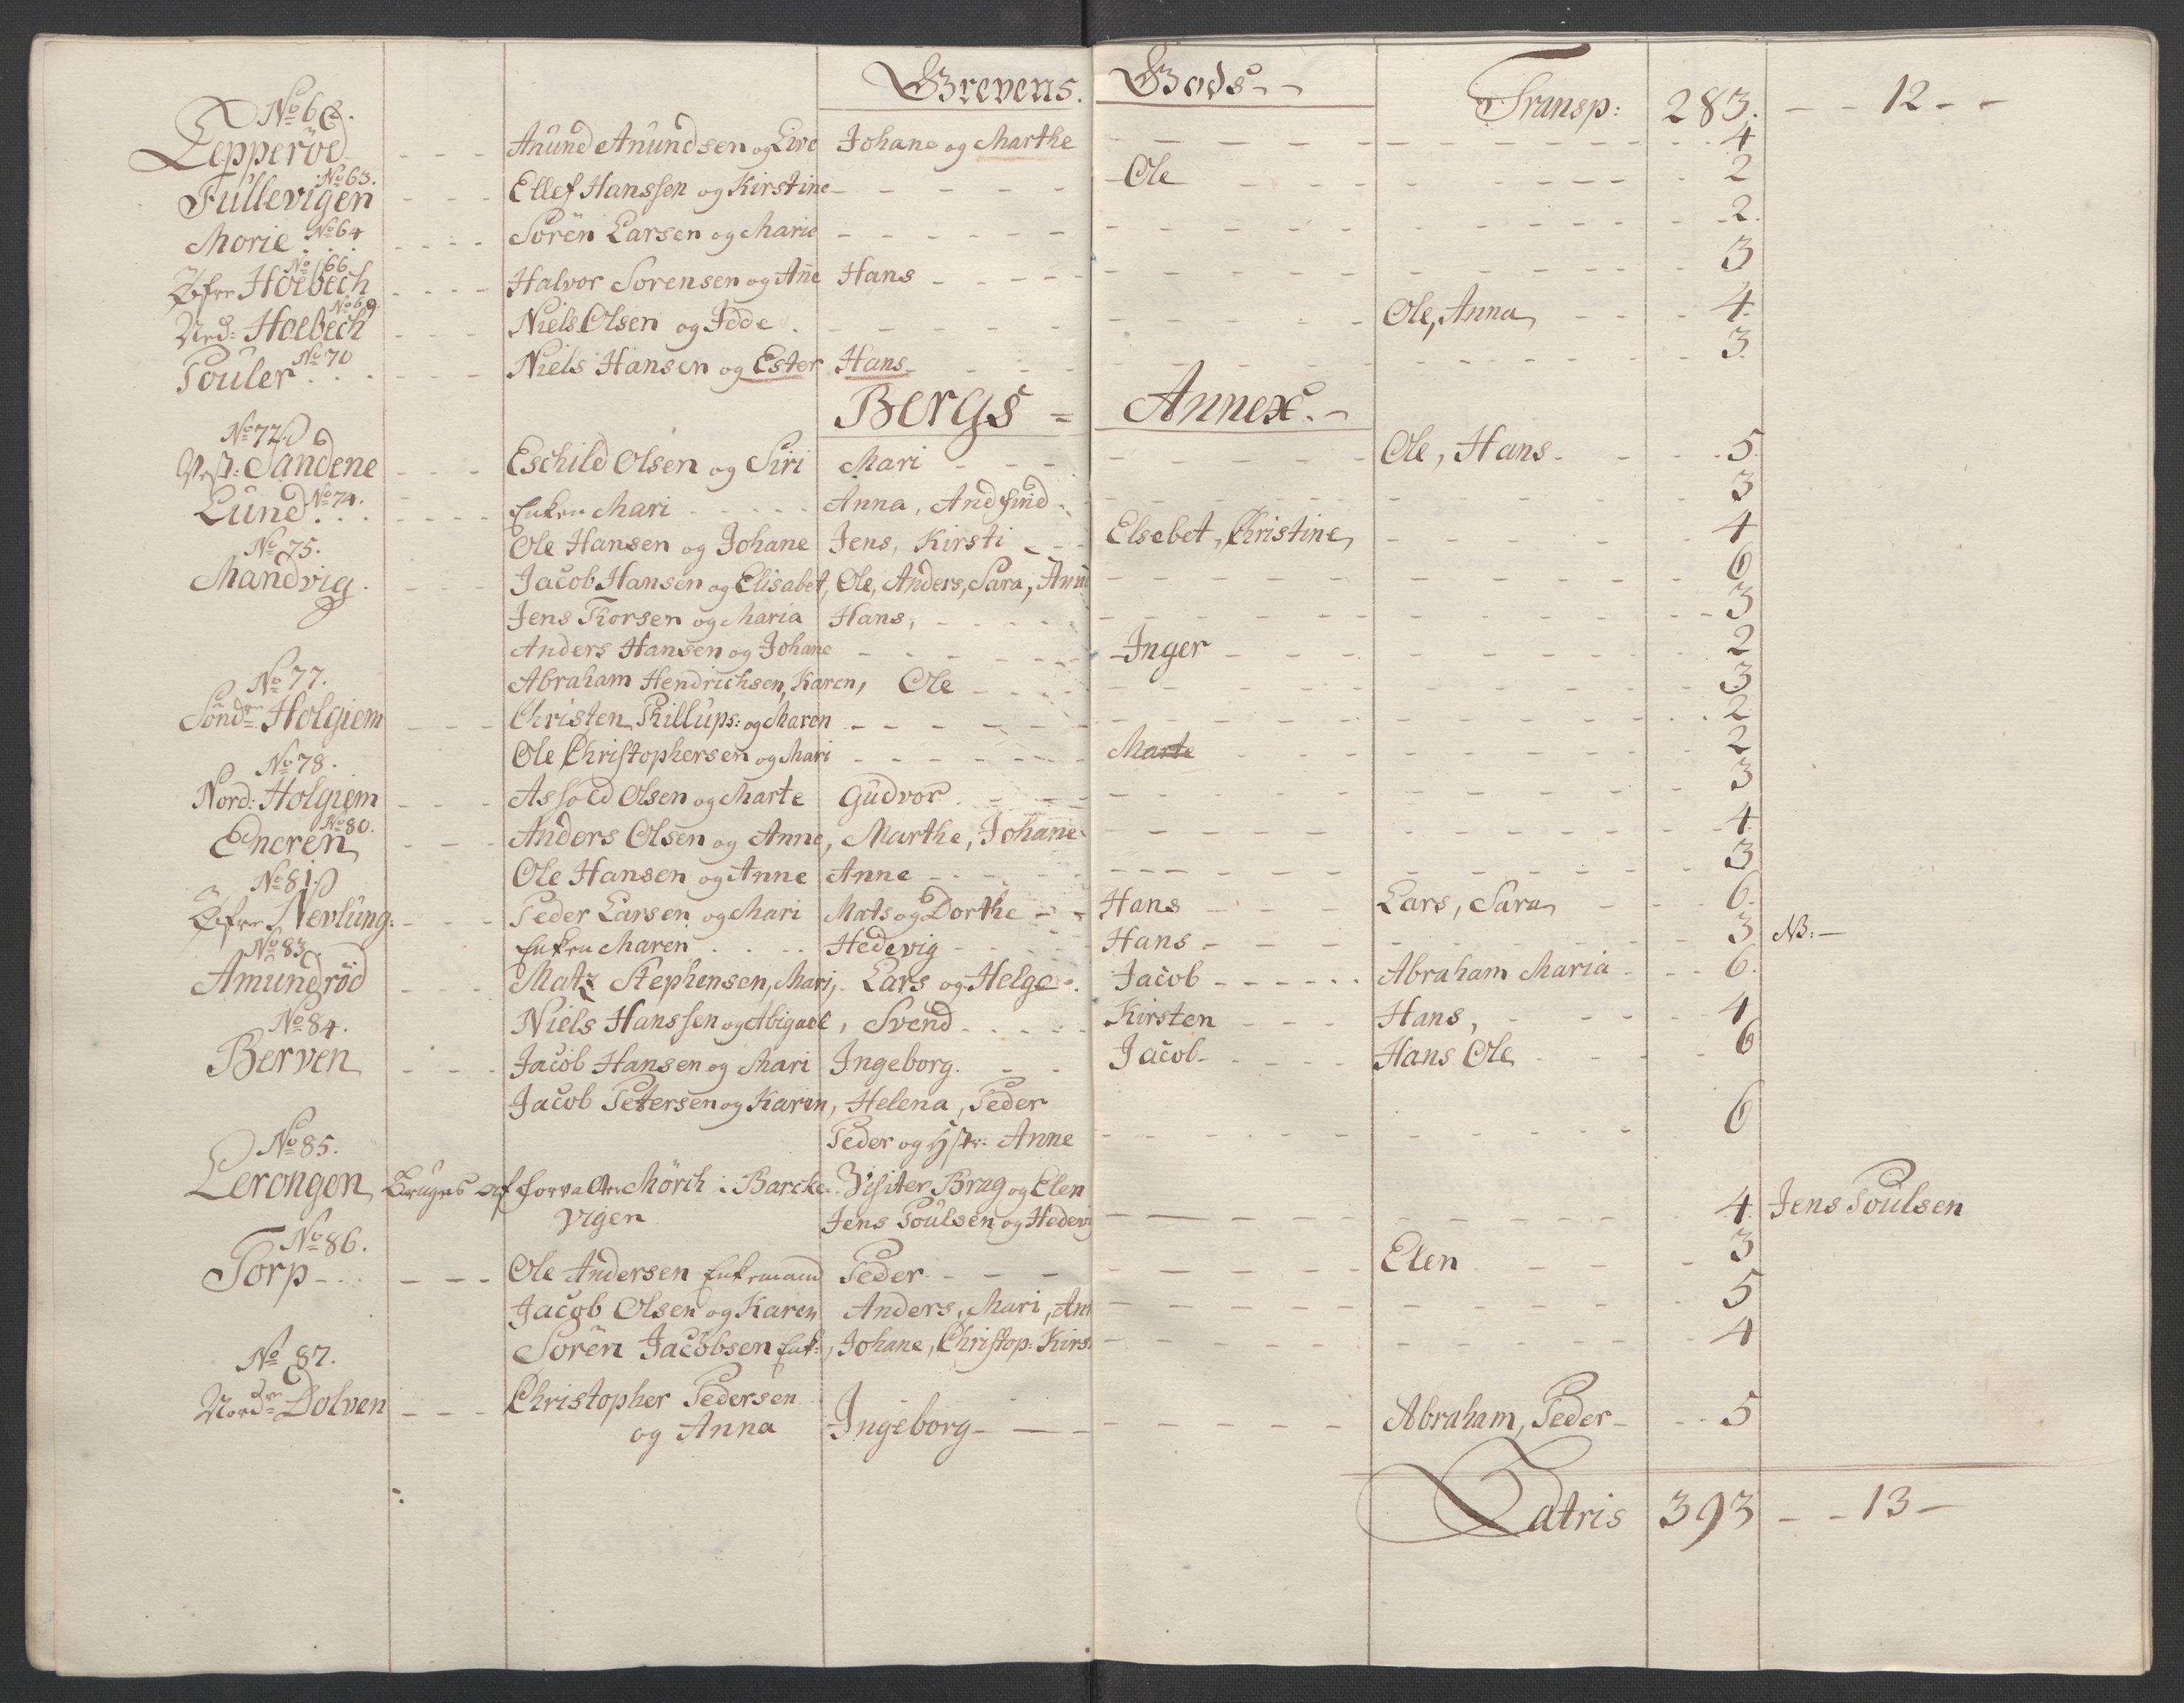 Grevens. Gods - -
Transp: 283. - - 12 - -
No 62.
Lepperöd - - - Anund Anundsen og Live Johane og Marthe - - - 4
No 63.
Fullevigen - - - Ellef Hanssen og Kirstine - - - Ole - - - 2
Morie No 64 - - - Sören Larsen og Marie - - - 2.
No 66
Öfre Hoebech - - - Halvor Sorensen og Ane Hans - - - 3
No 69
Ned: Hoebech - - - Niels Olsen og Idde - - - Ole, Anna - - - 4.
Pouler No 70 - - - Niels Hansen og Ester Hans - - - 3.
Bergs = Annex. -
No 72
Vest: Sandene - - - Eschild Olsen og Siri Mari - - - Ole, Hans - - - 5.
Lund No 74. - - - Enken Mari - - - Anna, Andfind - - - 3
No 75. Ole Hansen og Johane Jens, Kirsti - - - Elsebet, Christine, - - - 4
Mandvig. - - - Jacob Hansen og Elisabet, Ole, Anders, Sara, Ann - - - 6
Jens Thorsen og Maria Hans, - - - 3
Anders Hansen og Johane - - - Inger - - - 2
No 77. Abraham Hendrichsen, Karen, Ole - - - 3
Söndre Holgiem - - - Christen Phillups: og Maren - - - 2
No 78. Ole Christophersen og Mari - - - Marte - - - 2
Nord: Holgiem - - - Assold Olsen og Marte Gudvor - - - 3
No 80.
Eneren - - - Anders Olsen og Anne, Marthe, Johane - - - 4
No 81. Ole Hansen og Anne Anne - - - 3
Öfre Nevlung: - - - Peder Larsen og Mari Mats og Dorthe - - Hans - - - Lars, Sara - - - 6.
No 83 Enken Maren - - - Hedevig - - - Hans - - - 3 NB: -
Amundröd - - - Matz Stephensen, Mari, Lars og Helge. Jacob - - - Abraham Maria - - - 6.
No 84. Niels Hanssen og Abigael, Svend - - - Kirsten - - - Hans, - - - 4
Berven - - - Jacob Hansen og Mari Ingeborg. - - Jacob - - - Hans Ole - - - 6
Jacob Petersen og Karen, Helena, Peder
No 85. Peder og Hstr: Anne - - - 6
Lerongen Bruges af Forvalter Mörch i Barcke- Visiter Brag og Elen
vigen Jens Poulsen og Hedevi - - - 4. Jens Poulsen
No 86.
Torp - - - Ole Andersen Enkemand Peder - - - Elen - - - 3
Jacob Olsen og Karen Anders, Mari, An - - - 5
Sören Jacobsen Enk:, Johane, Christop: Kirs - - - 4
No 87.
Nordre Dolven - - - Christopher Pedersen
og Anna Ingeborg - - - Abraham, Peder - - - 5
Latris 393 - - 13 -